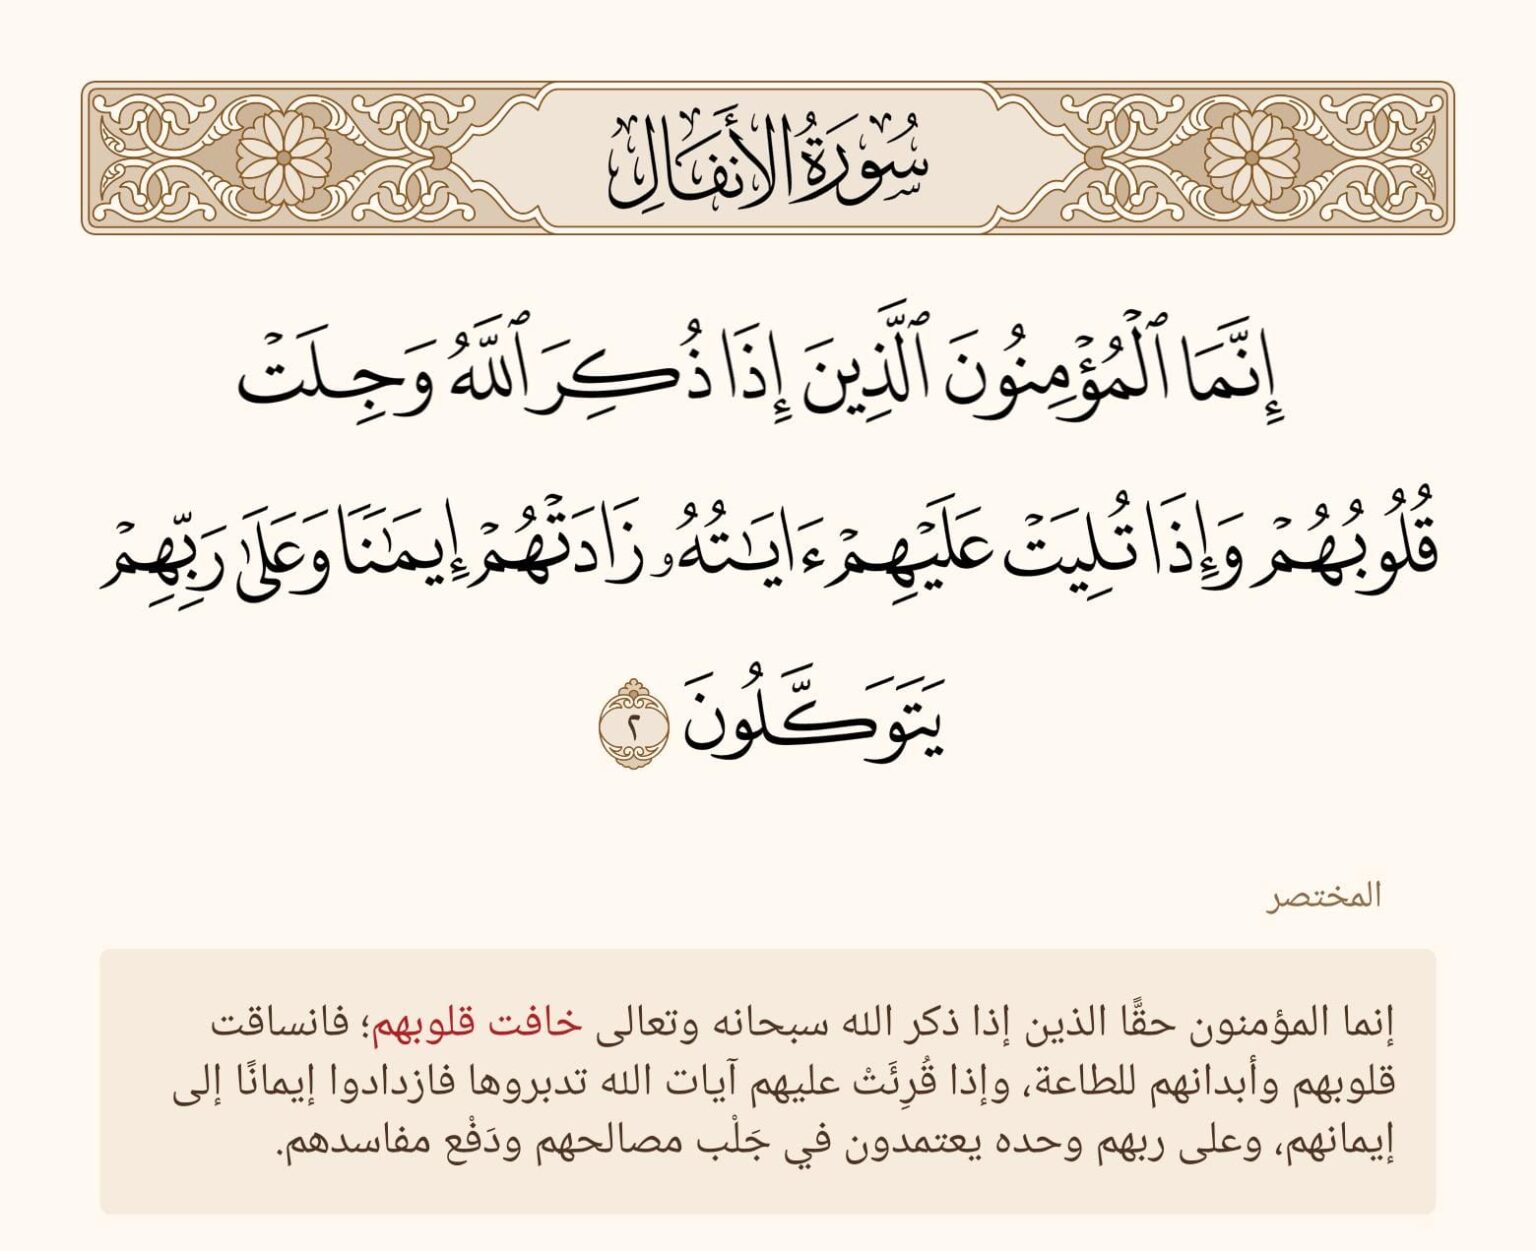 سُورَةُ الأَنفَالِ
إِنَّمَا ٱلۡمُؤۡمِنُونَ ٱلَّذِينَ إِذَا ذُكِرَ ٱللَّهُ وَجِلَتۡ
قُلُوبُهُمۡ وَإِذَا تُلِيَتۡ عَلَيۡهِمۡ ءَايَٰتُهُۥ زَادَتۡهُمۡ إِيمَٰنٗا وَعَلَىٰ رَبِّهِمۡ
يَتَوَكَّلُونَ ٢
المختصر
إنما المؤمنون حقًّا الذين إذا ذكر الله سبحانه وتعالى خافت قلوبهم؛ فانساقت
قلوبهم وأبدانهم للطاعة، وإذا قُرِئَتْ عليهم آيات الله تدبروها فازدادوا إيمانًا إلى
إيمانهم، وعلى ربهم وحده يعتمدون في جَلْب مصالحهم ودَفْع مفاسدهم.